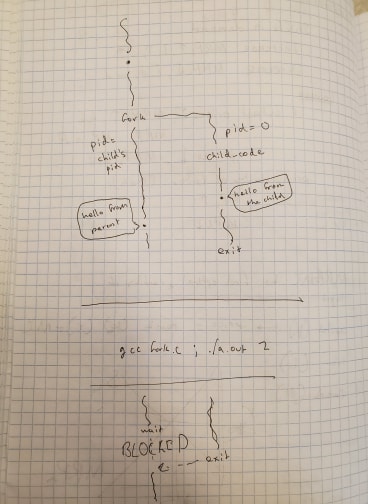 fork
pid=
child's
pid
pid=0
child_code
hello from
parent
hello from
the child
exit
gcc fork.c ; ./a.out 2
wait
BLOCKED
exit